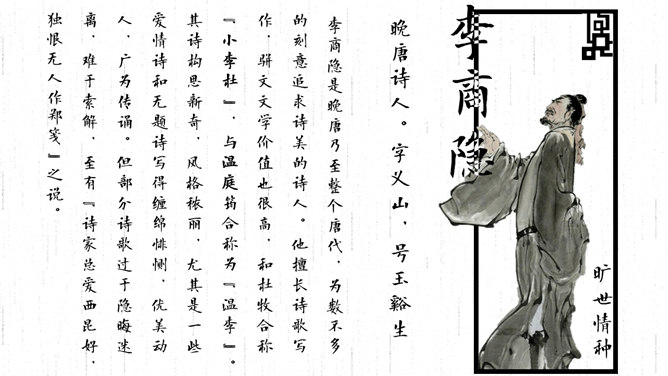 李商隐
旷世情种
晚唐诗人。字义山，号玉谿生
李商隐是晚唐乃至整个唐代，为数不多
的刻意追求诗美的诗人。他擅长诗歌写
作，骈文文学价值也很高，和杜牧合称
『小李杜』，与温庭筠合称为『温李』。
其诗构思新奇，风格秾丽，尤其是一些
爱情诗和无题诗写得缠绵悱恻，优美动
人，广为传诵。但部分诗歌过于隐晦迷
离，难于索解，至有『诗家总爱西昆好，
独恨无人作郑笺』之说。